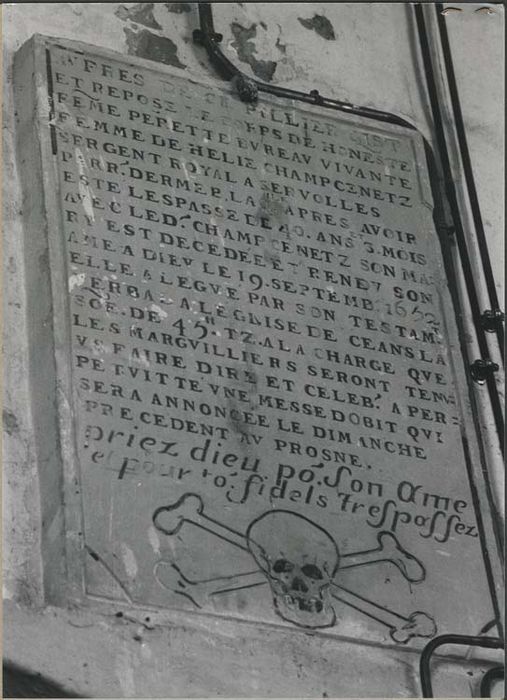 AVPRES DE CE PILLIER GIST
ET REPOSE LE CORPS DE HONESTE
FEME PERETTE EVREAV VIVANTE
FEMME DE HELIE CHAMPCENETZ
SERGENT ROYAL A SERVOLLES
PARR. DERMER. LA APRES AVOIR
ESTE LESPASSE DE 40. ANS 3. MOIS
AVEC LED. CHAMPCENETZ SON MA
RY EST DECEDÉE ET RENDV SON
AME A DIEV LE 19. SEPTEMB. 1652
ELLE A LEGVE PAR SON TESTAM
VERBAL A LEGLISE DE CEANS LA
SOE. DE 45tt TZ. A LA CHARGE QVE
LES MARGVILLIERS SERONT TENV
VS FAIRE DIRE ET CELEB. A PER=
PETVITTE VNE MESSE DOBIT QVI
SERA ANNONCEE LE DIMANCHE
PRECEDENT AV PROSNE.
priez dieu po. son ame
et pour to. fidels trespassez